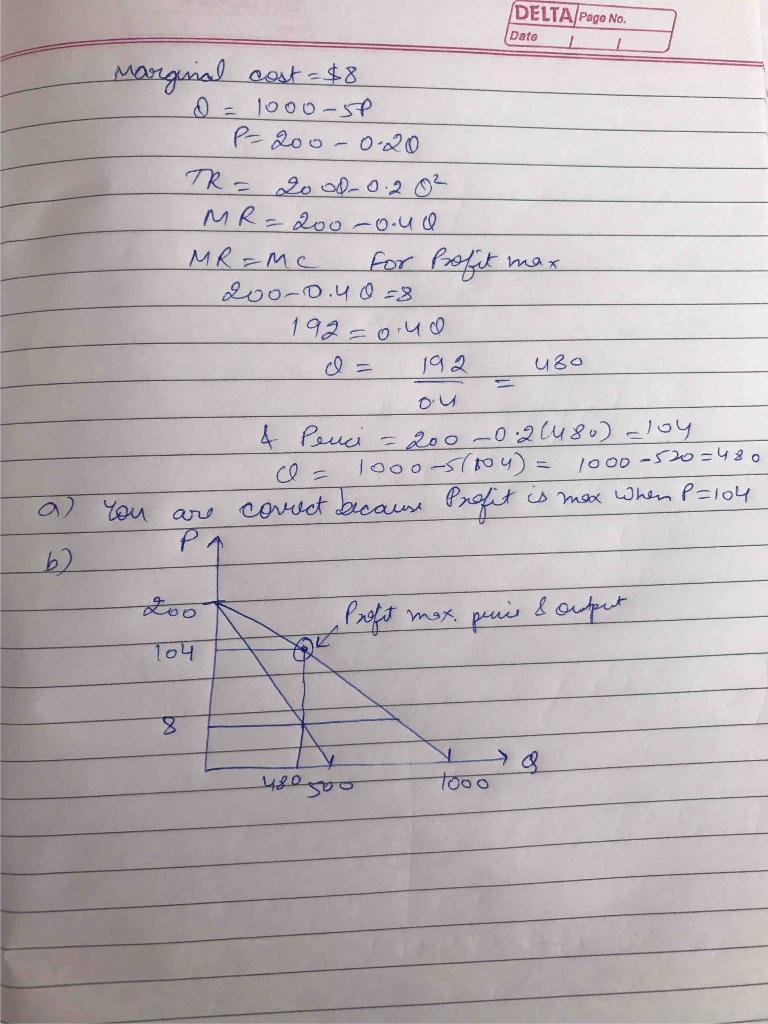 DELTA Page No.
Date
Marginal cost = $8
Q = 1000 - 5P
P = 200 - 0.2Q
TR = 200Q - 0.2 Q²
MR = 200 - 0.4Q
MR = MC For Profit max
200 - 0.4Q = 8
192 = 0.4Q
Q = 192 / 0.4 = 480
& Price = 200 - 0.2(480) = 104
Q = 1000 - 5(104) = 1000 - 520 = 480
a) You are correct because Profit is max when P = 104
b)
P
200
Profit max. price & output
104
8
480 500 1000 Q